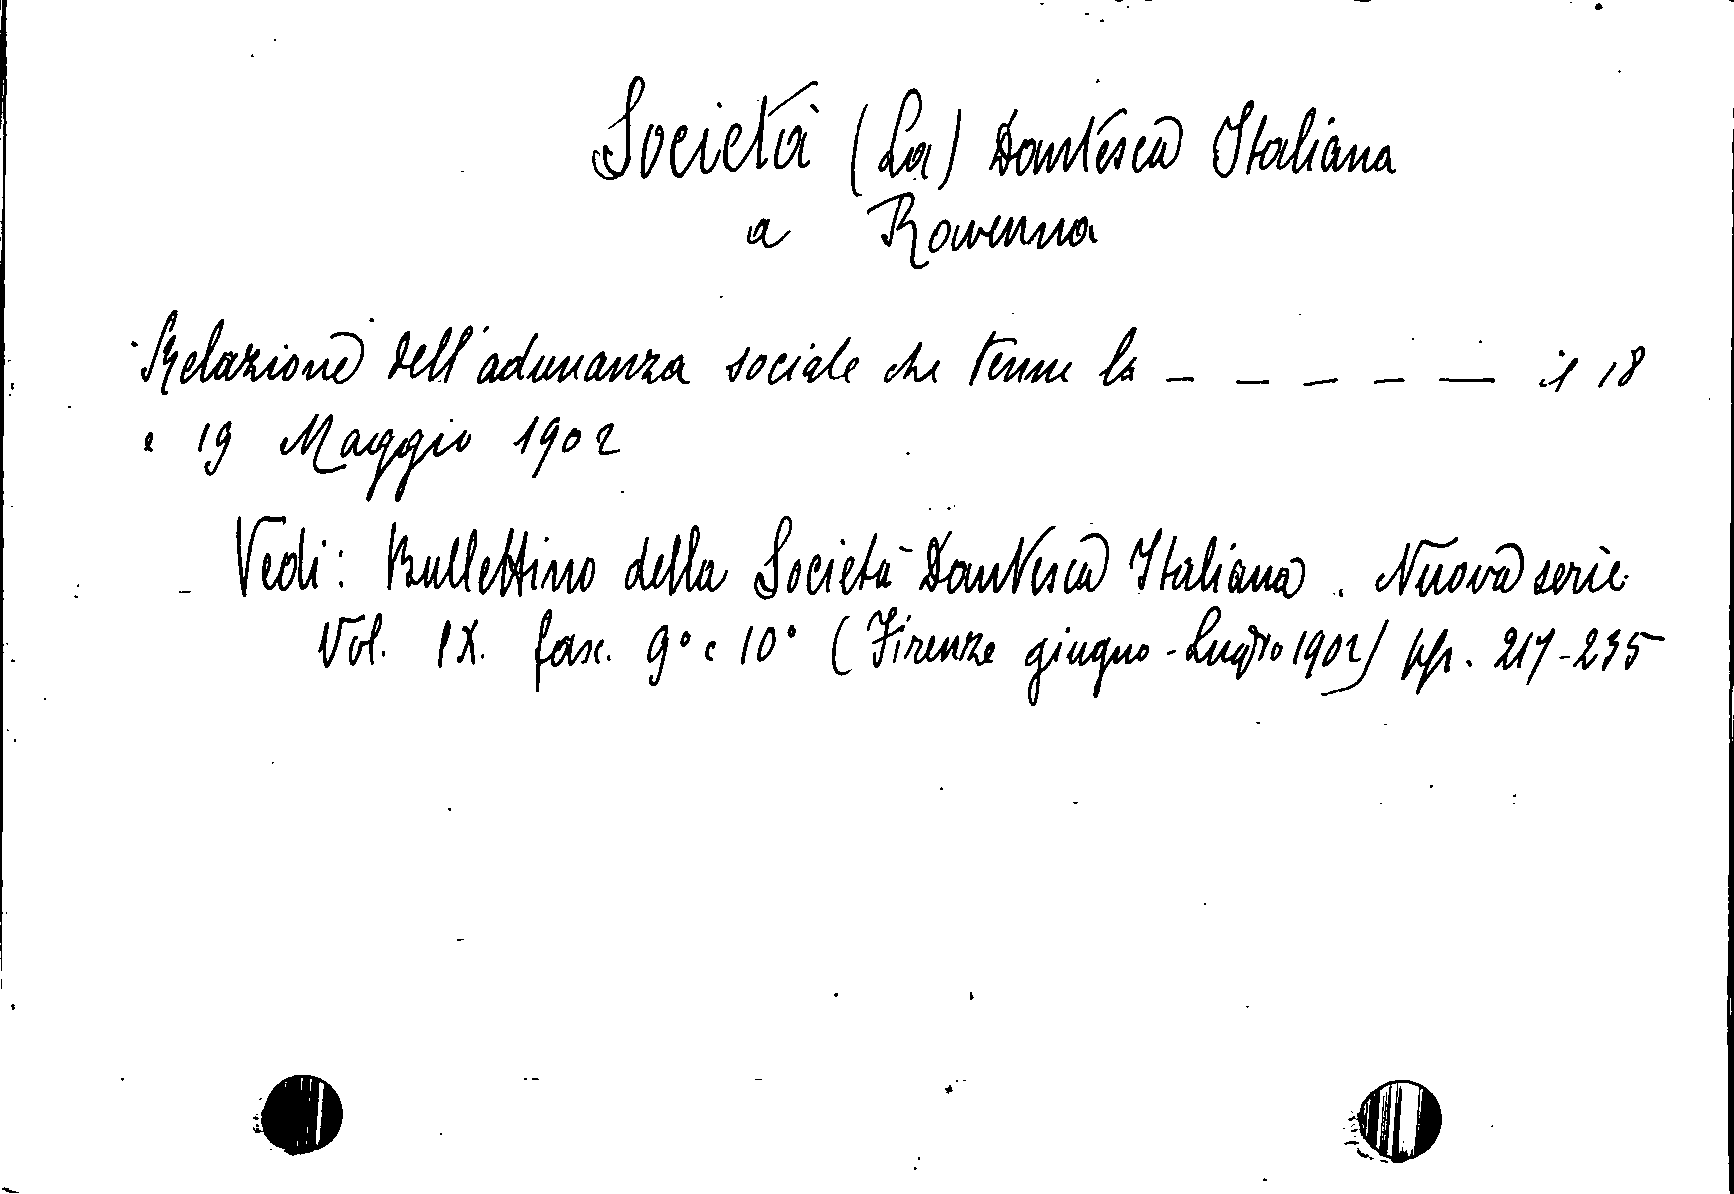 Società (La) Dantesca Italiana
a Ravenna
Relazione dell'adunanza sociale che tenne la _ _ _ _ _ il 18
e 19 Maggio 1902
Vedi: Bullettino della Società Dantesca Italiana. Nuova serie
Vol. IX. fasc. 9° e 10° (Firenze giugno-Luglio 1902) pp. 217-235